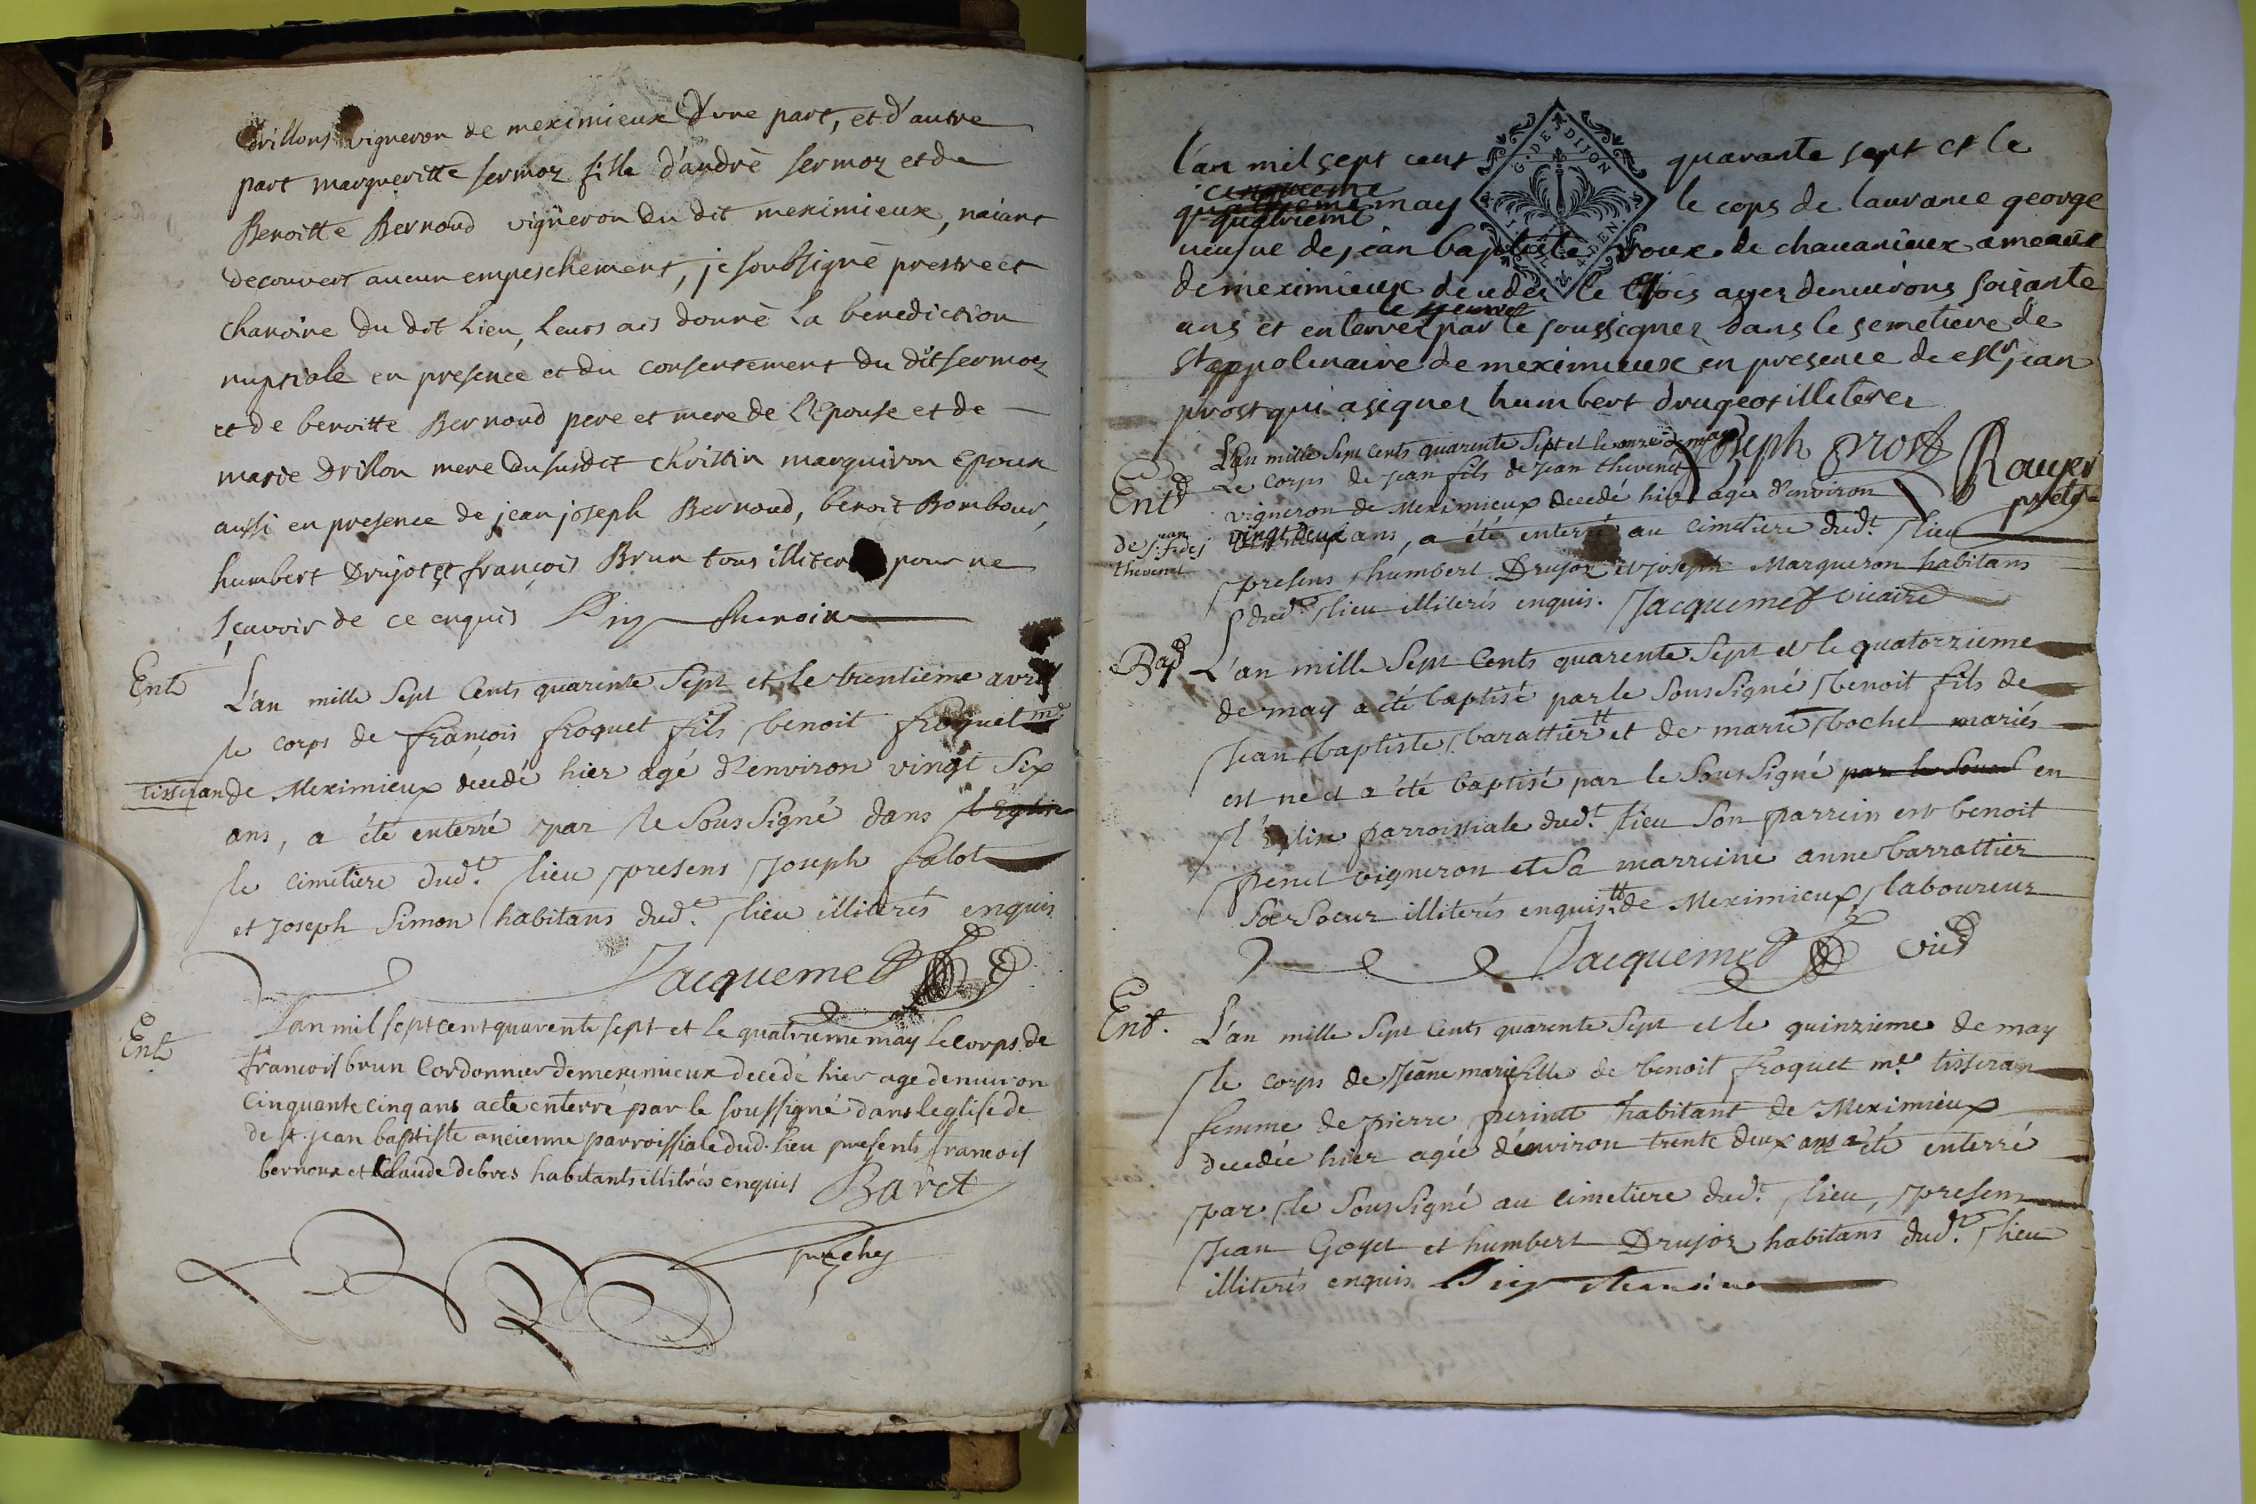 drillons vigneron de meximieux d'une part, et d'autre
part margueritte sermoz fille d'andrè sermoz et de
Benoitte Bernoud vigneron du dit meximieux, naiant
decouvert aucun empeschement, je soubsignè prestre et
chanoine du dit Lieu, Leurs ais donnè La benediction
nuptiale en presence et du consentement du dit sermoz
et de benoitte Bernoud pere et mere de L'Epouse et de
marie Drillon mere du susdit christin marguiron Epoux
aussi en presence de jean joseph Bernoud, benoit Bombour,
humbert Drujot et françois Brun tous illiter pour ne
sçavoir de ce enquis
Ent L'an mille Sept Cents quarente Sept et le trentieme avril
le corps de françois froquet fils benoit froquet m.e
tisseran de Meximieux decedé hier agé d'environ vingt Six
ans, a été enterré par le Soussigné dans l'Eglise
le cimetiere dud.t lieu presens Joseph falot
et Joseph Simon habitans dud.t lieu illiterés enquis
Jacquemet
Ent L'an mil sept cent quarente sept et le quatrieme may le corps de
francois brun Cordonnier de meximieux decedé hier age denuiron
cinquante cinq ans a ete enterré par le soussigné dans leglise de
de st. jean baptiste ancienne parroissiale dud. lieu presents francois
bernoux et Claude debres habitants illitrés enquis Baret
G. DE DIJON
l'an mil sept cent quarante sept et le
cinquieme
quatrieme may le cops de laurance george
quatrieme
ueusue de jean baptiste roux de chauanieux ameaux
de meximieux deceder le trois ager denuirons soisante
ans et enterrez par le soussigner dans le semetiere de
st appolinaire de meximieux en presence de jean
prost qui a signer humbert drugeot illiterer
Joseph prost Rouyer
L'an mille Sept Cents quarente Sept et le onze de may
Ent Le corps de Jean fils de Jean thevenet
vigneron de Meximieux decedé hier agé d'environ
de Jean
thevenet
vingt deux ans, a été enterré au cimetiere dud.t lieu
presens humbert Drujoz et joseph Marguiron habitans
dud.t lieu illiterés enquis. Jacquemet vicaire
Bap L'an mille Sept Cents quarente Sept et le quatorzieme
de may a été baptisé par le Soussigné benoit fils de
Jean baptiste barattier tt et de marie bochet mariés
est né et a été baptisé par le Soussigné par le Souss en
l'église parroissiale dud.t lieu Son parrein est benoit
penet vigneron et Sa marreine anne barrattier
Sa Soeur illiterés enquis. tt de Meximieux laboureur
Jacquemet
Ent. L'an mille Sept Cents quarente Sept et le quinzieme de may
le corps de Jeane marie fille de benoit froquet m.e tisseran
femme de pierre perinet habitant de Meximieux
decedée hier agée d'environ trente deux ans a été enterré
par le Soussigné au cimetiere dud.t lieu, presens
Jean Goyet et humbert Drujoz habitans dud.t lieu
illiterés enquis